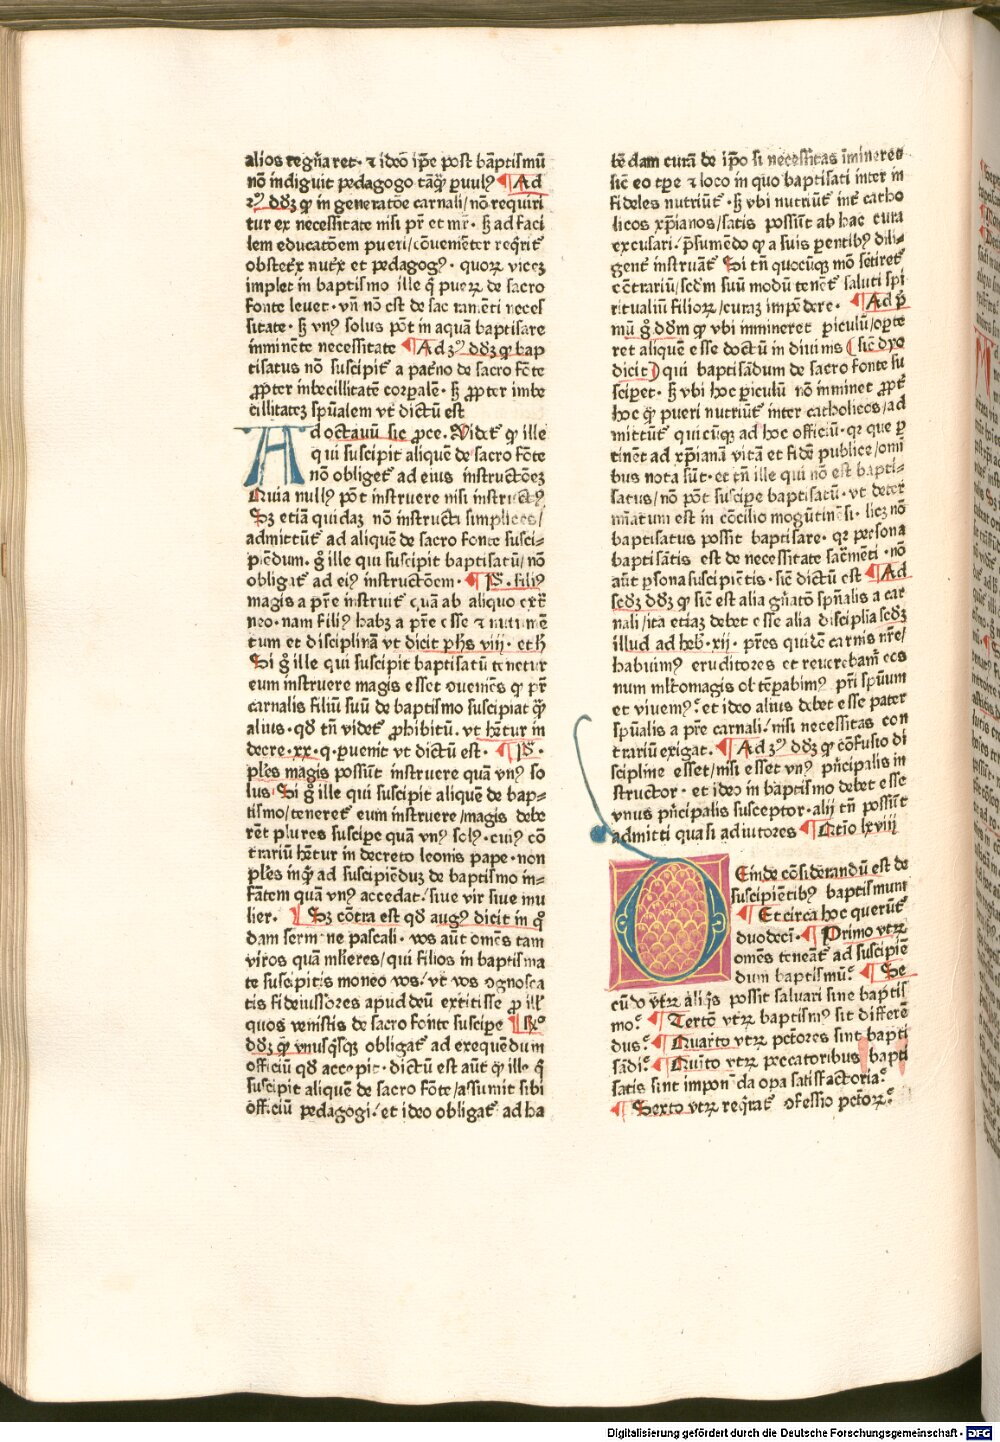 alios regn̄aret· ⁊ ideō ip̄e post bāptismū
nō indiguit pedagogo tāq̄ꝫ ꝑuulꝰ ¶ Ad
2ꝰ dōꝫ ꝙ in generatōe carnali/nō requiri
tur ex necessitate nisi pr̄ et mr̄· sꝫ ad faci
lem educatōem pueri/cōueniēter reqrit᷑
obstetꝝ nutꝝ et pedagogꝰ· quoꝝ viceꝫ
implet in baptismo ille q̄ pueꝝ de sacro
fonte leuet· vn̄ nō est de sac ramēti neces
sitate· sꝫ vnꝰ solus pōt in aquā baptisare
imminēte necessitate ¶ Ad 3ꝰ dōꝫ ꝙ bap
tisatus nō suscipit᷑ a patn̄o de sacro fōte
ꝓpter inbecillitatē corꝑalē· sꝫ ꝓpter imbe
cillitateꝫ spūalem vt dictū est
Ad octauū sic ꝓce. Videt᷑ ꝙ ille
qui suscipit aliquē de sacro fōte
nō obliget᷑ ad eius instructōeꝫ
Quia nullꝰ pōt instruere nisi instructꝰ
Sꝫ etiā quidaꝫ nō instructi simplices/
admittūt᷑ ad aliquē de sacro fonte susci-
piēdum. gͦ ille qui suscipit baptisatū/nō
obligat᷑ ad eiꝰ instructōem· ¶ P̄. filiꝰ
magis a pr̄e instruit᷑ quā ab aliquo extr̄
neo· nam filiꝰ habꝫ a pr̄e esse ⁊ nutrimē
tum et disciplinā vt dicit phs viii· eth
Si gͦ ille qui suscipit baptisatū tenetur
eum instruere magis esset ꝯueniēs ꝙ pr̄
carnalis filiū suū de baptismo suscipiat q̄ꝫ
alius· qd̄ tn̄ videt᷑ ꝓhibitū. vt hētur in
decre· xx· q· puenit vt dictū est· ¶ P̄·
ples magis possūt instruere quā vnꝰ so
lus· Si gͦ ille qui suscipit aliquē de bap-
tismo/teneret᷑ eum instruere/magis debe
rēt plures suscipe quā vnꝰ solꝰ· cuiꝰ cō
trariū hētur in decreto leonis pape· non
ples inq̄t ad suscipiēduꝫ de baptismo in-
fātem quā vnꝰ accedat/ siue vir siue mu
lier. ¶ Sꝫ cōtra est qd̄ augꝰ dicit in q̄
dam sermone pascali· vos aūt omēs tam
viros quā ml̄ieres/qui filios in baptisma
te suscipitis moneo vos/ vt vos ꝯgnosca
tis fideiussores apud deū extitisse ꝓ ill̄
quos venistis de sacro fonte suscipe ¶ Rͦ
dōꝫ ꝙ vnusq̄sqꝫ obligat᷑ ad exequēdum
officiū qd̄ accepit· dictū est aūt ꝙ ille q̄
suscipit aliquē de sacro fōte/assumit sibi
officiū pedagogi/ et ideo obligat᷑ ad ha
bēdam curā de ip̄o si necessitas īmineret
sic̄ eo tp̄e ⁊ loco in quo baptisati inter in
fideles nutriūt᷑· sꝫ vbi nutriūt᷑ int᷑ catho
licos xp̄ianos/satis possūt ab hac cura
excusari/ p̄sumēdo ꝙ a suis parentibꝰ dili-
gent᷑ instruāt᷑ Si tn̄ quocūqꝫ mō sētiret᷑
cōtrariū/scdm suū modū tenet᷑ saluti spi
ritualiū filioꝝ/curaꝫ impēdere· ¶ Ad p̄
mū gͦ dōm ꝙ vbi immineret periculū/oporte
ret aliquē esse doctū in diuinis (sic̄ dyo
dicit) qui baptisādum de sacro fonte su
sciperet· sꝫ vbi hoc periculū nō imminet propt᷑
hoc ꝙ pueri nutriūt᷑ inter catholicos/ad
mittūt᷑ quicūqꝫ ad hoc officiū· qr que per
tinēt ad xp̄ianā vitā et fidē publice/omī
bus nota sūt· et tn̄ ille qui nō est bapti-
satus/nō pōt suscipe baptisatū· vt deter
minatum est in cōcilio mogūtinēsi· liꝫ nō
baptisatus possit baptisare· qr persona
baptisātis est de necessitate sacr̄mēti· nō
aūt ꝑsona suscipiētis· sic̄ dictū est ¶ Ad
scdꝫ dōꝫ ꝙ sic̄ est alia gn̄atō spūalis a car
nali/ita etiaꝫ debet esse alia disciplia scdꝫ
illud ad heb̄· xij· pr̄es quidē carnis nr̄e/
habuimꝰ eruditores et reuerebam᷑ eos
num ml̄tomagis obtēꝑabimꝰ pr̄i spūum
et viuemꝰ· et ideo alius debet esse pater
spūalis a pr̄e carnali/ nisi necessitas con
trariū exigat. ¶ Ad 3ꝰ dōꝫ ꝙ cōfusio di
scipline esset/nisi esset vnꝰ pn̄cipalis in
structor· et ideo in baptismo debet esse
vnus pn̄cipalis susceptor· alij tn̄ possūt
admitti quasi adiutores ¶ Q̄tio lxviij
Deinde cōsiderandū est de
suscipiētibꝰ baptismum
¶ Et circa hoc querūt᷑
duodeci· ¶ Primo vtꝝ
omēs teneāt᷑ ad suscipiē
dum baptismū? ¶ Se
cūdo vtꝝ aliq̄s possit saluari sine baptis
mo? ¶ Tertō vtꝝ baptismꝰ sit differē
dus? ¶ Quarto vtꝝ pctōres sint bapti
sādi? ¶ Quīto vtꝝ peccatoribus bapti
satis sint imponēda opa satisfactoria?
¶ Sexto vtꝝ reqrat᷑ ꝯfessio pctōꝝ?
Digitalisierung gefördert durch die Deutsche Forschungsgemeinschaft - DFG